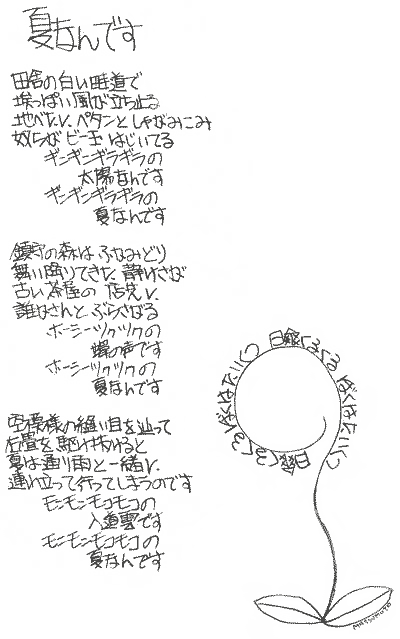 夏なんです
田舎の白い畦道で
埃っぽい風が立ち止る
地べたに ペタンと しゃがみこみ
奴らが ビー玉 はじいてる
ギンギンギラギラの
太陽なんです
ギンギンギラギラの
夏なんです
鎮守の森は ふかみどり
舞い降りてきた 静けさが
古い茶屋の 店先に
誰かさんと ぶらさがる
ホーシーツクツクの
蝉の声です
ホーシーツクツクの
夏なんです
空模様の縫い目を辿って
石畳を駆け抜けると
夏は通り雨と一緒に
連れ立って行ってしまうのです
モンモンモコモコの
入道雲です
モンモンモコモコの
夏なんです
日傘くるくる ぼくはたいくつ
日傘くるくる ぼくはたいくつ
MATSUMOTO